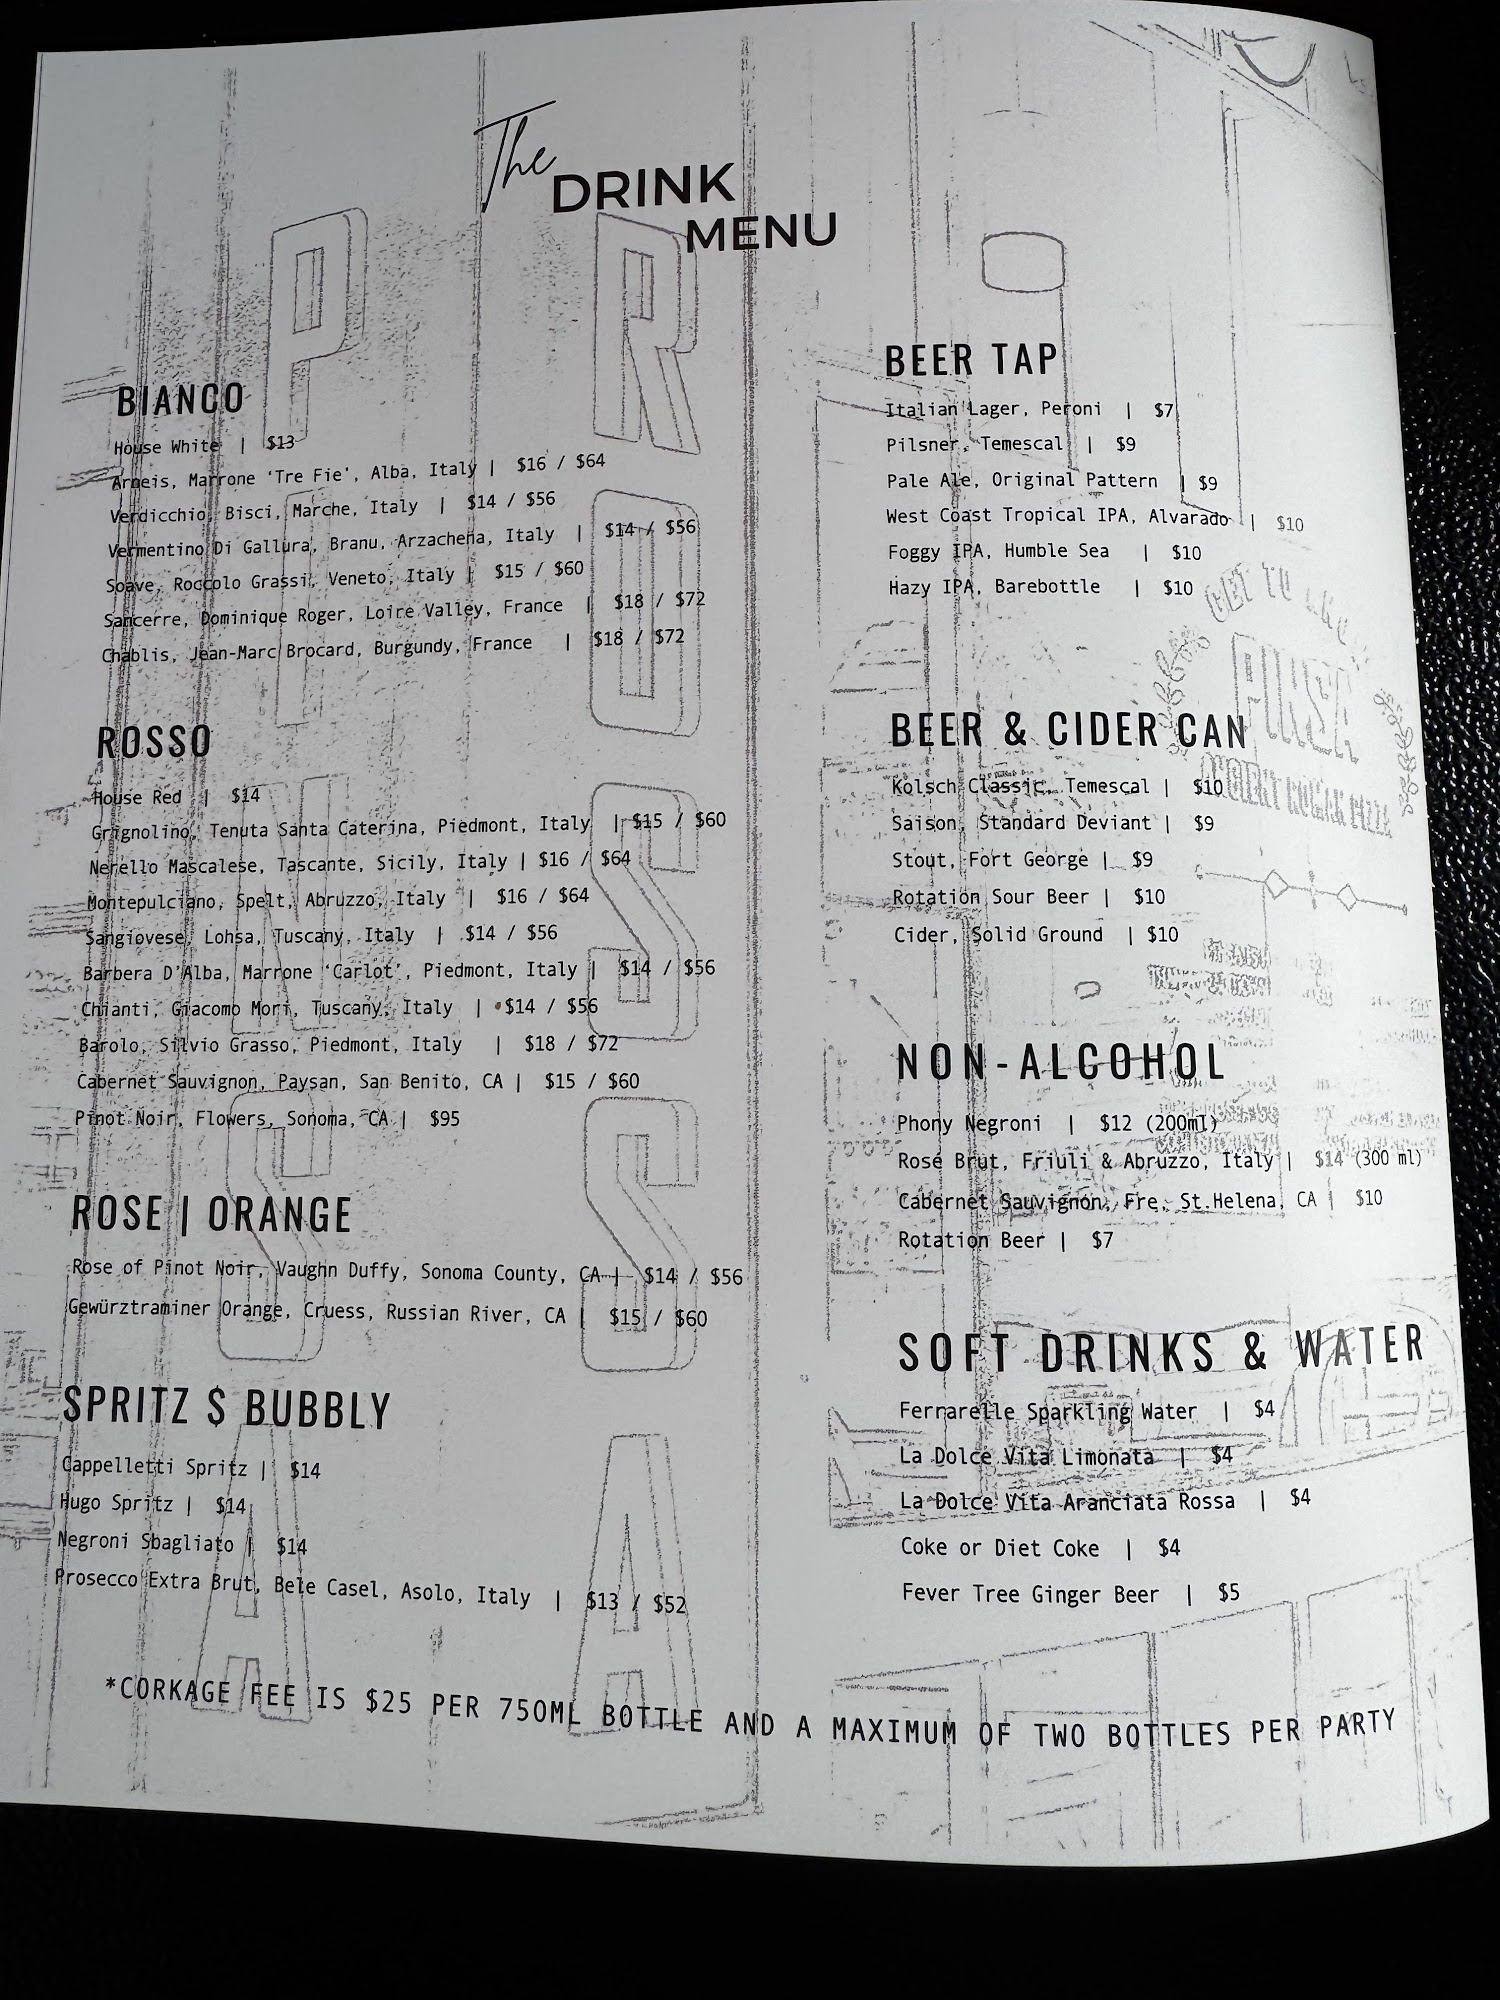 The
DRINK
MENU
BIANCO
House White | $13
Arneis, Marrone ‘Tre Fie’, Alba, Italy | $16 / $64
Verdicchio, Bisci, Marche, Italy | $14 / $56
Vermentino Di Gallura, Branu, Arzachena, Italy | $14 / $56
Soave, Roccolo Grassi, Veneto, Italy | $15 / $60
Sancerre, Dominique Roger, Loire Valley, France | $18 / $72
Chablis, Jean-Marc Brocard, Burgundy, France | $18 / $72
ROSSO
House Red | $14
Grignolino, Tenuta Santa Caterina, Piedmont, Italy | $15 / $60
Nerello Mascalese, Tascante, Sicily, Italy | $16 / $64
Montepulciano, Spelt, Abruzzo, Italy | $16 / $64
Sangiovese, Lohsa, Tuscany, Italy | $14 / $56
Barbera D’Alba, Marrone ‘Carlot’, Piedmont, Italy | $14 / $56
Chianti, Giacomo Mori, Tuscany, Italy | $14 / $56
Barolo, Silvio Grasso, Piedmont, Italy | $18 / $72
Cabernet Sauvignon, Paysan, San Benito, CA | $15 / $60
Pinot Noir, Flowers, Sonoma, CA | $95
ROSE | ORANGE
Rose of Pinot Noir, Vaughn Duffy, Sonoma County, CA | $14 / $56
Gewürztraminer Orange, Cruess, Russian River, CA | $15 / $60
SPRITZ $ BUBBLY
Cappelletti Spritz | $14
Hugo Spritz | $14
Negroni Sbagliato | $14
Prosecco Extra Brut, Bele Casel, Asolo, Italy | $13 / $52
BEER TAP
Italian Lager, Peroni | $7
Pilsner, Temescal | $9
Pale Ale, Original Pattern | $9
West Coast Tropical IPA, Alvarado | $10
Foggy IPA, Humble Sea | $10
Hazy IPA, Barebottle | $10
BEER & CIDER CAN
Kolsch Classic, Temescal | $10
Saison, Standard Deviant | $9
Stout, Fort George | $9
Rotation Sour Beer | $10
Cider, Solid Ground | $10
NON-ALCOHOL
Phony Negroni | $12 (200ml)
Rosé Brut, Friuli & Abruzzo, Italy | $14 (300 ml)
Cabernet Sauvignon, Fre, St.Helena, CA | $10
Rotation Beer | $7
SOFT DRINKS & WATER
Ferrarelle Sparkling Water | $4
La Dolce Vita Limonata | $4
La Dolce Vita Aranciata Rossa | $4
Coke or Diet Coke | $4
Fever Tree Ginger Beer | $5
*CORKAGE FEE IS $25 PER 750ML BOTTLE AND A MAXIMUM OF TWO BOTTLES PER PARTY
PINSA
ROSSA
PINSA
ANCIENT ROMAN PIZZA